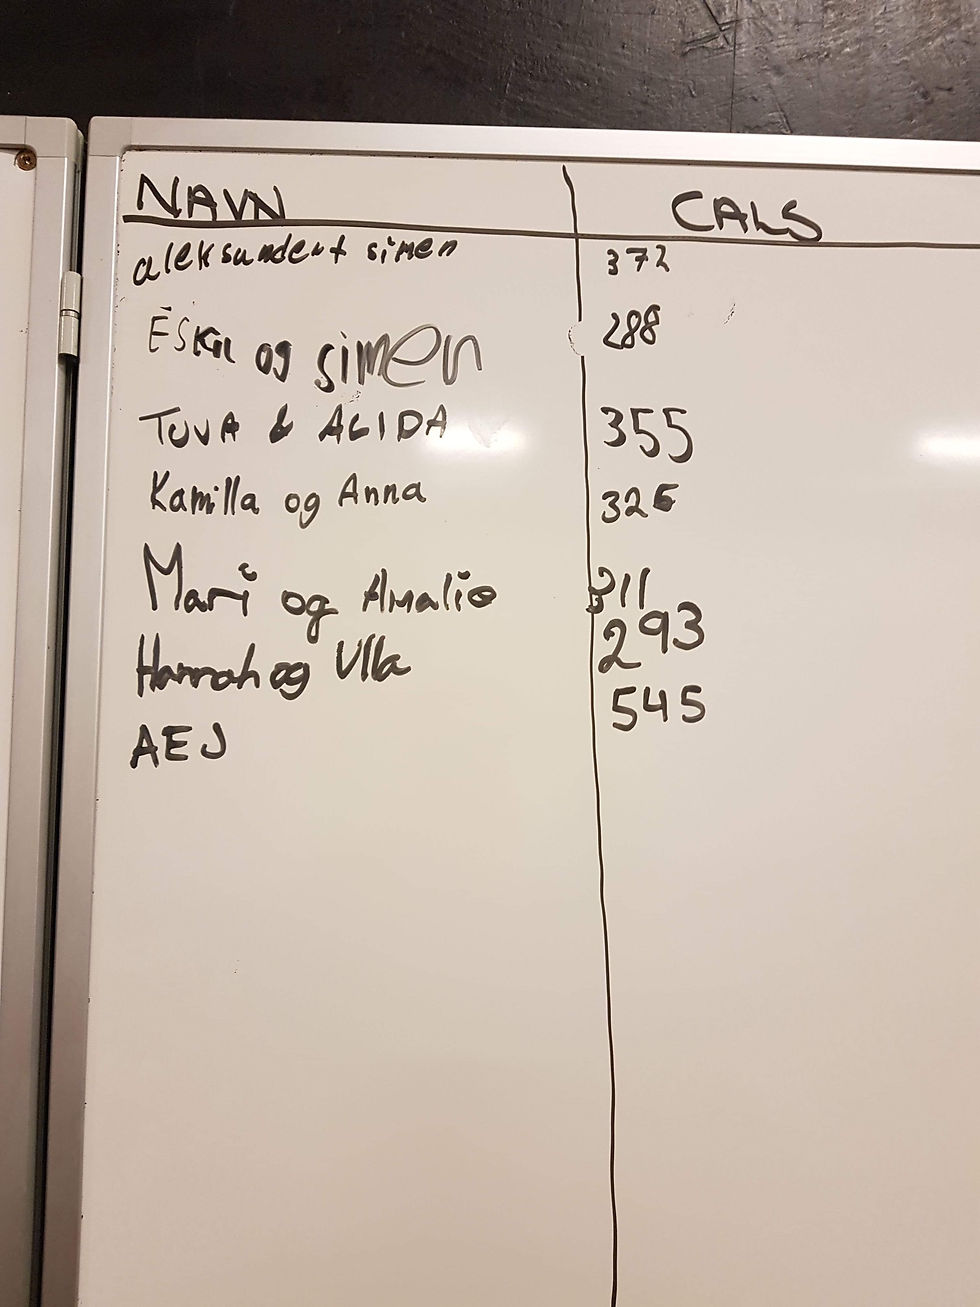 NAVN CALS
aleksander+ simen 372
ESKIL og simen 288
TUVA & ALIDA 355
Kamilla og Anna 326
Mari og Amalie 311
Hannah og Ulla 293
AEJ 545